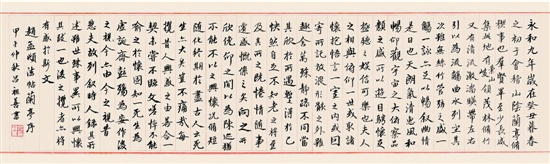 永和九年歲在癸丑暮春
之初會于會稽山陰蘭亭脩
禊事也羣賢畢至少長咸
集此地有崇山峻領茂林脩竹
又有清流激湍暎帶左右
引以為流觴曲水列坐其
次雖無絲竹管弦之盛一
觴一詠亦足以暢敘幽情
是日也天朗氣清惠風和
暢仰觀宇宙之大俯察品
類之盛所以遊目騁懷足以
極視聽之娛信可樂也夫人
之相與俯仰一世或取諸
懷抱悟言一室之內或因
寄所託放浪形骸之外雖
趣舍萬殊靜躁不同當
其欣於所遇暫得於己
快然自足不知老之將至
及其所之既惓情隨事
遷感慨係之矣向之所
欣俛仰之間以為陳迹猶
不能不以之興懷況脩短
隨化終期於盡古人云死
生亦大矣豈不痛哉每
攬昔人興感之由若合一
契未嘗不臨文嗟悼不能
喻之於懷固知一死生為
虛誕齊彭殤為妄作後
之視今亦由今之視昔
悲夫故列敘時人錄其所
述雖世殊事異所以興懷
其致一也後之攬者亦將
有感於斯文
趙孟頫法帖蘭亭序
甲午仲秋呂祖善書